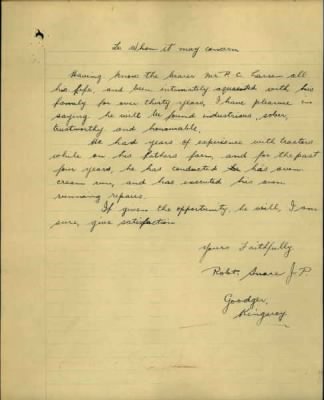 To Whom it may concern
Having know the bearer Mr P. C. Larsen all
his life, and been intimately aquainted with his
family for over thirty years, I have pleasure in
saying he will be found industrious, sober,
trustworthy and honourable.
He had years of experience with tractors
while on his fathers farm, and for the past
four years, he has conducted his own
cream run, and has executed his own
running repairs.
If given the opportunity, he will, I am
sure, give satisfaction
Yours Faithfully
Robt. Snare J.P.
Goodger,
Kingaroy